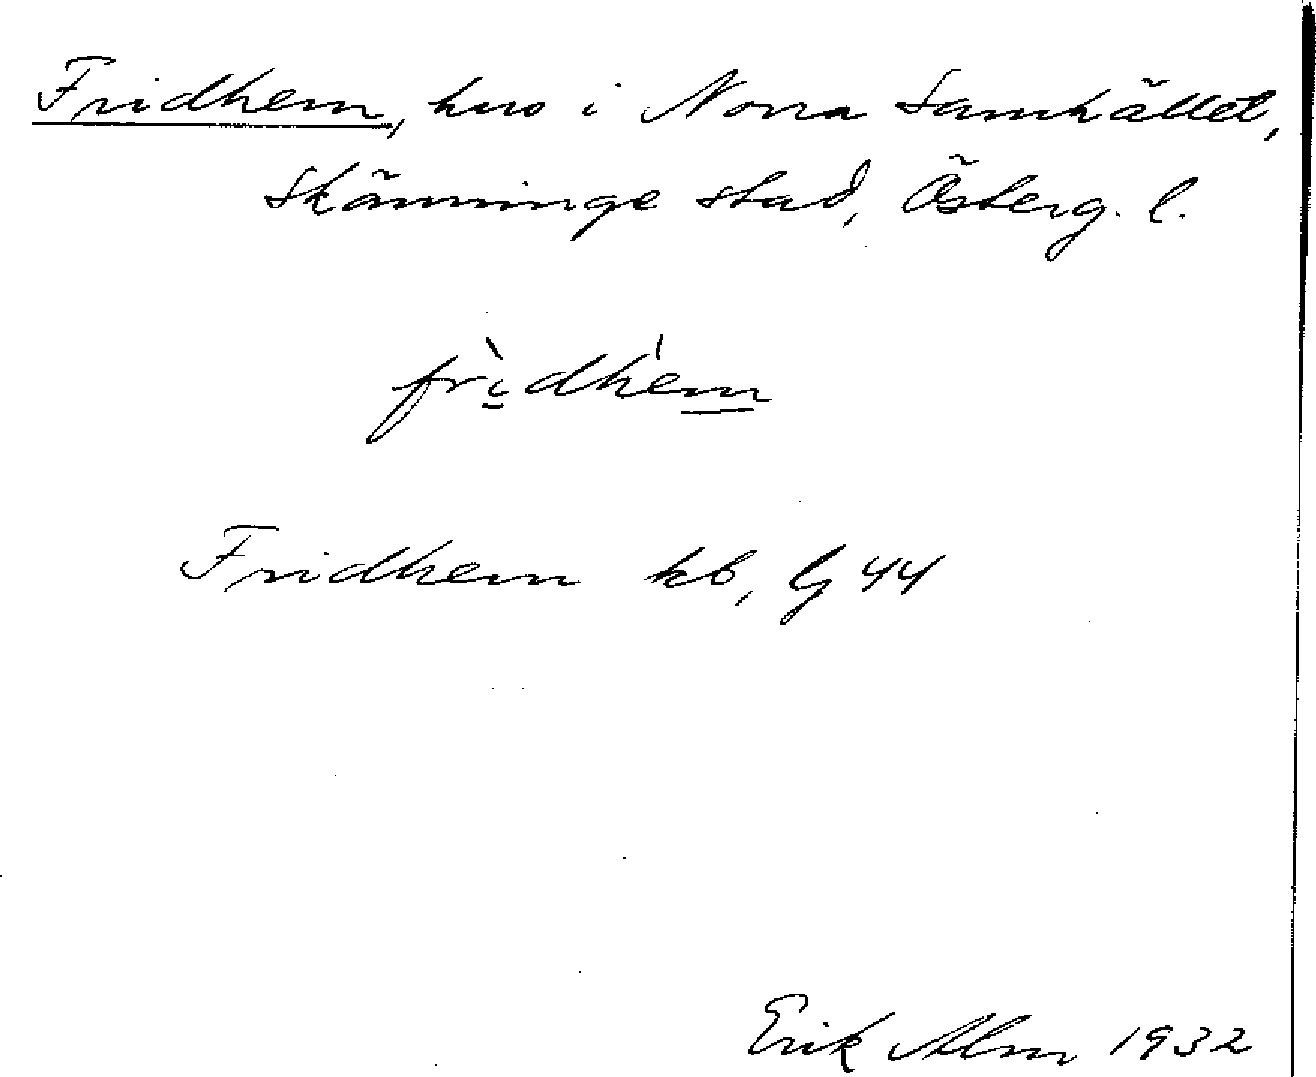 Fridhem, hus i Norra Samhället,
Skänninge stad, Österg. l.
fri̱dhem
Fridhem kb, lg 44
Erik Alm 1932